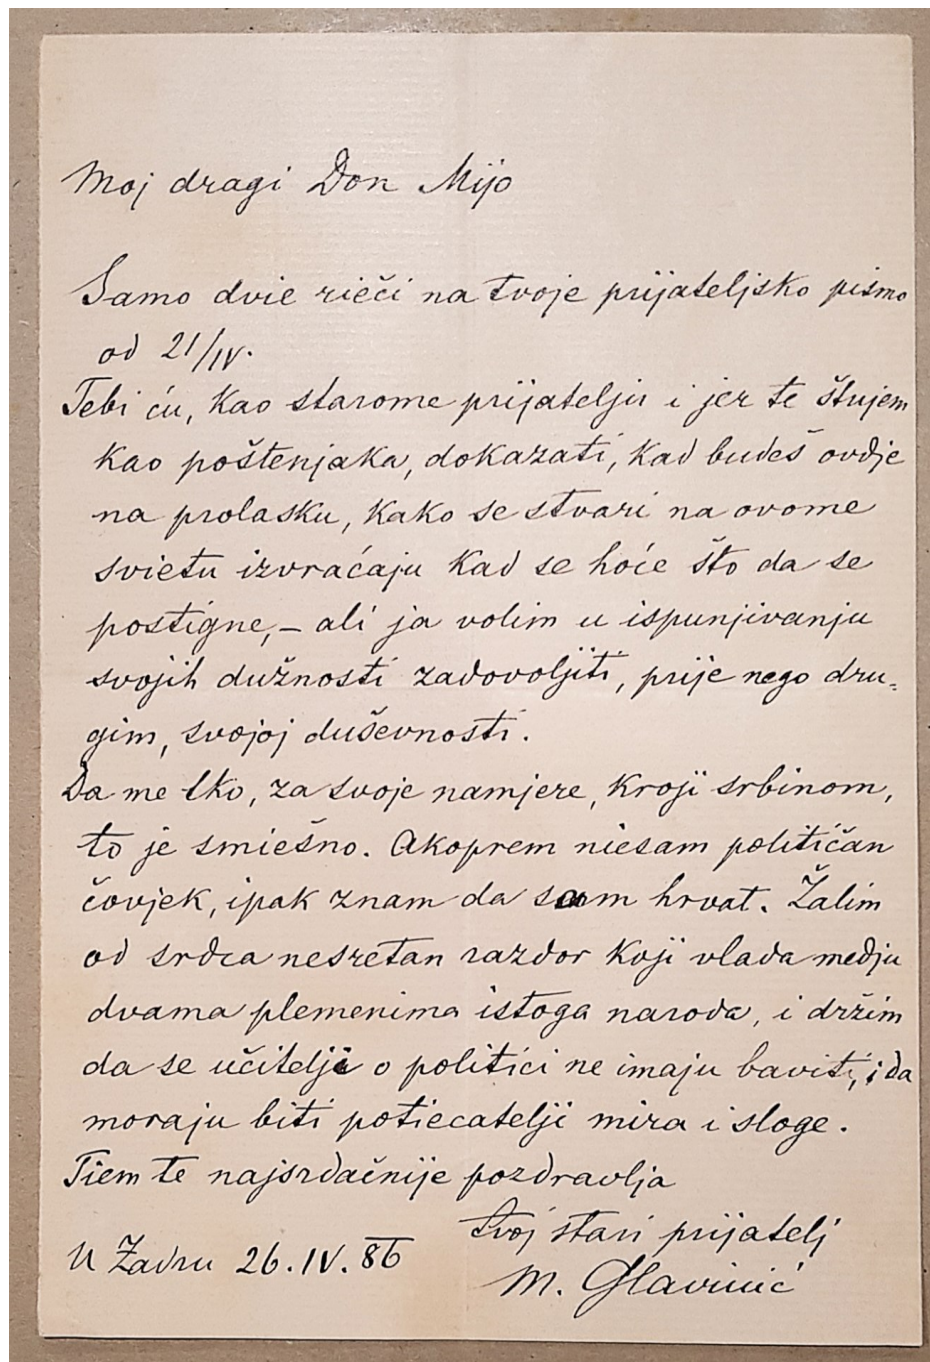 Moj dragi Don Mijo
Samo dvie rieči na tvoje prijateljsko pismo
od 21/IV.
Tebi ću, kao starome prijatelju i jer te štujem
kao poštenjaka, dokazati, kad budeš ovdje
na prolasku, kako se stvari na ovome
svietu izvraćaju kad se hoće što da se
postigne, – ali ja volim u ispunjivanju
svojih dužnosti zadovoljiti, prije nego dru=
gim, svojoj duševnosti.
Da me tko, za svoje namjere, kroji srbinom,
to je smiešno. Akoprem niesam političan
čovjek, ipak znam da sam hrvat. Žalim
od srdca nesretan razdor koji vlada medju
dvama plemenima istoga naroda, i držim
da se učitelji o politici ne imaju baviti, i da
moraju biti potiecatelji mira i sloge.
Tiem te najsrdačnije pozdravlja
tvoj stari prijatelj
U Zadru 26.IV.86
M. Glavinić